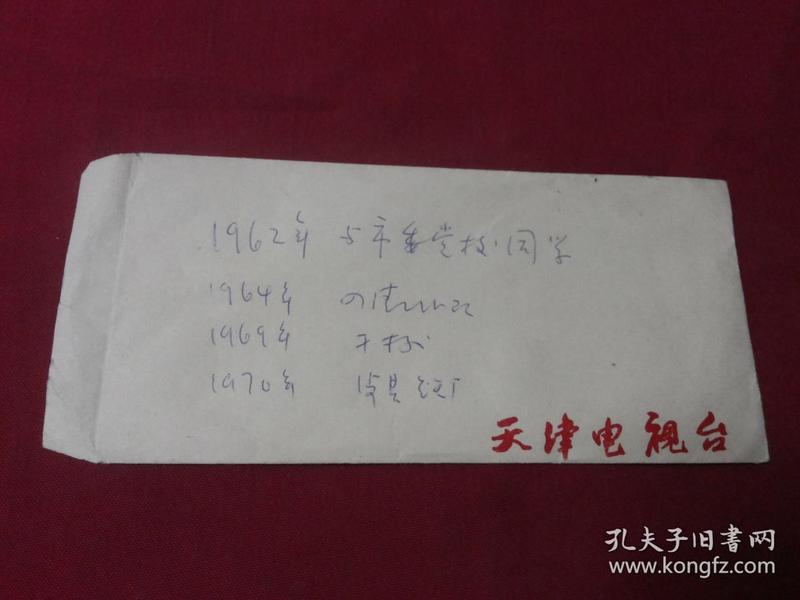 1962年 与市委党校同学
1964年 四清
1969年 干校
1970年
天津电视台
孔夫子旧書网
www.kongfz.com